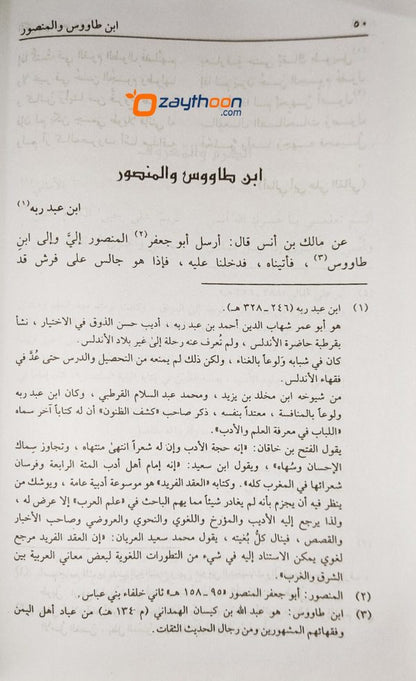 ٥٠ ابن طاووس والمنصور
zaythoon
.com
ابن طاووس والمنصور
ابن عبد ربه(١)
عن مالك بن أنس قال: أرسل أبو جعفر(٢) المنصور إليَّ وإلى ابنِ
طاووس(٣) ، فأتيناه، فدخلنا عليه، فإذا هو جالس على فرش قد
(١) ابن عبد ربه (٢٤٦ ـ ٣٢٨ هـ).
هو أبو عمر شهاب الدين أحمد بن عبد ربه، أديب حسن الذوق في الاختيار، نشأ
بقرطبة حاضرة الأندلس، ولم تُعرف عنه رحلة إلى غير بلاد الأندلس.
كان في شبابه وَلوعاً بالغناء، ولكن ذلك لم يمنعه من التحصيل والدرس حتى عُدَّ في
فقهاء الأندلس.
من شيوخه ابن مخلد بن يزيد، ومحمد عبد السلام القرطبي، وكان ابن عبد ربه
ولوعاً بالمنافسة، معتداً بنفسه، ذكر صاحب «كشف الظنون» أن له كتاباً آخر سماه
«اللباب في معرفة العلم والأدب».
يقول الفتح بن خاقان: «إنه حجة الأدب وإن له شعراً انتهىٰ منتهاه، وتجاوز سِماك
الإحسان وسُهاه»، ويقول ابن سعيد: «إنه إمام أهل أدب المئة الرابعة وفرسان
شعرائها في المغرب كله». وكتابه «العقد الفريد» هو موسوعة أدبية عامة، ويوشك من
ينظر فيه أن يجزم بأنه لم يغادر شيئاً مما يهم الباحث في «علم العرب» إلا عرض له،
ولذا يرجع إليه الأديب والمؤرخ واللغوي والنحوي والعروضي وصاحب الأخبار
والقصص، فينال كلٌّ بُغيته، يقول محمد سعيد العريان: «إن العقد الفريد مرجع
لغوي يمكن الاستناد إليه في شيء من التطورات اللغوية لبعض معاني العربية بين
الشرق والغرب».
(٢) المنصور: أبو جعفر المنصور «٩٥ ـ ١٥٨ هـ» ثاني خلفاء بني عباس.
(٣) ابن طاووس: هو عبد الله بن كيسان الهمداني (م ١٣٤ هـ) من عباد أهل اليمن
وفقهائهم المشهورين ومن رجال الحديث الثقات.